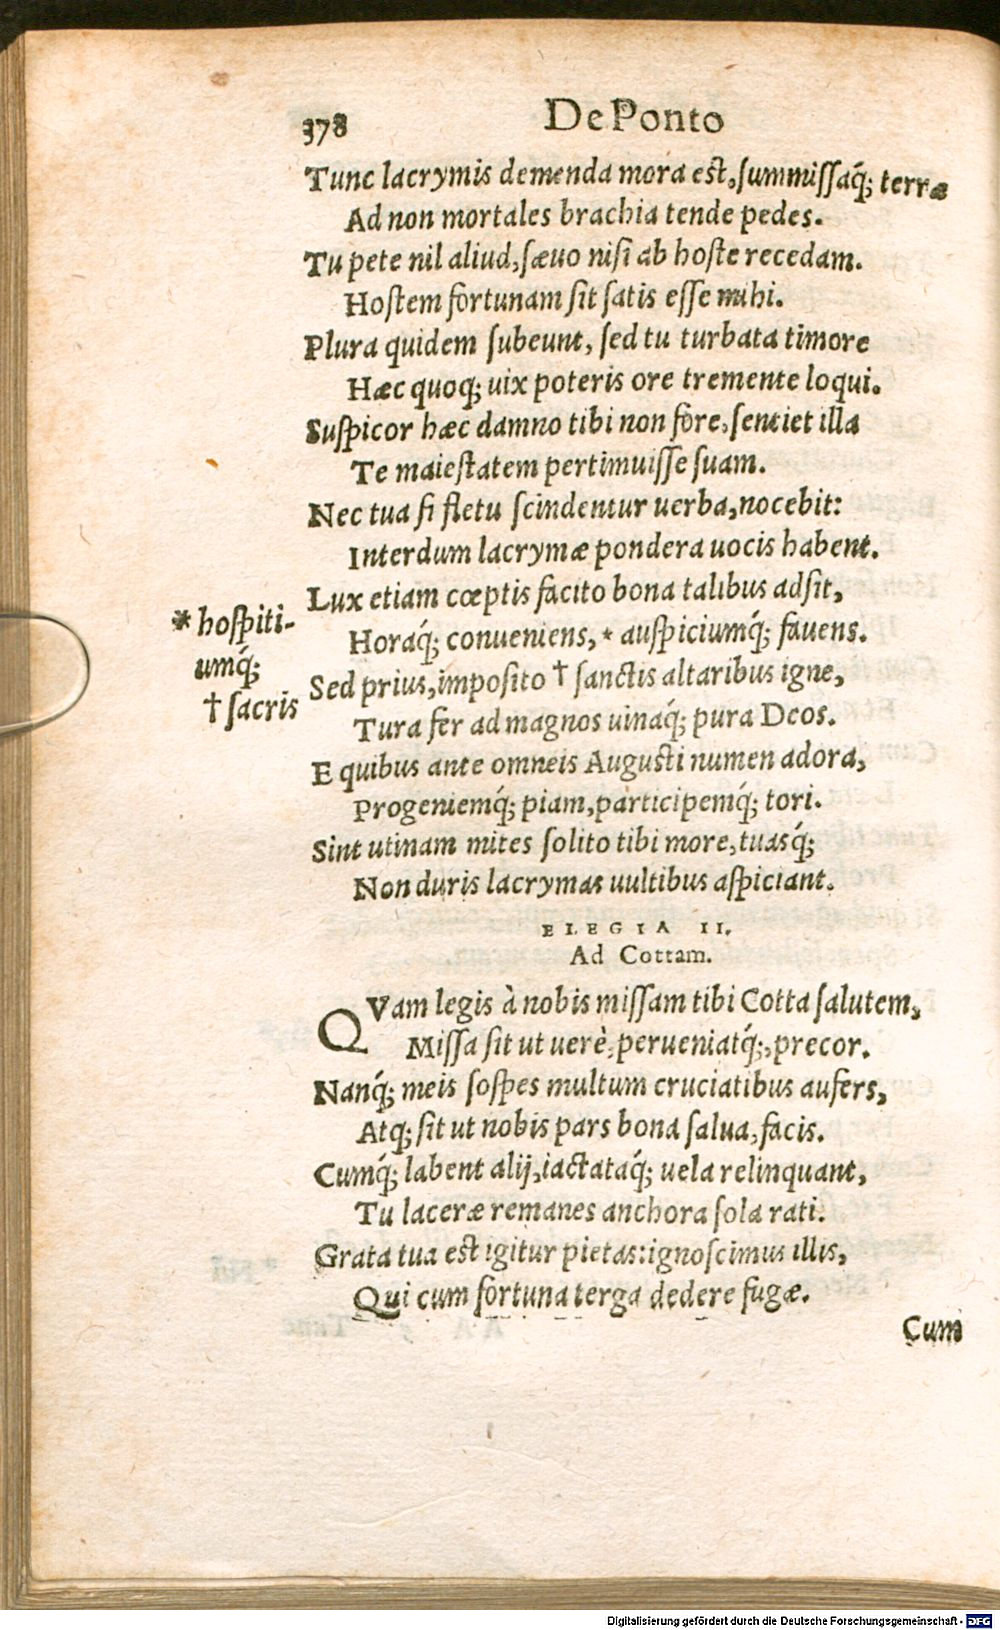 378 De Ponto
Tunc lacrymis demenda mora est, summissaq́; terræ
Ad non mortales brachia tende pedes.
Tu pete nil aliud, sæuo nisi ab hoste recedam.
Hostem fortunam sit satis esse mihi.
Plura quidem subeunt, sed tu turbata timore
Hæc quoq; uix poteris ore tremente loqui.
Suspicor hæc damno tibi non fore, sentiet illa
Te maiestatem pertimuisse suam.
Nec tua si fletu scindentur uerba, nocebit:
Interdum lacrymæ pondera uocis habent.
Lux etiam cœptis facito bona talibus adsit,
Horaq́; conueniens, * auspiciumq́; fauens.
Sed prius, imposito † sanctis altaribus igne,
Tura fer ad magnos uinaq́; pura Deos.
E quibus ante omneis Augusti numen adora,
Progeniemq́; piam, participemq́; tori.
Sint utinam mites solito tibi more, tuasq́;
Non duris lacrymas uultibus aspiciant.
* hospiti-
umq́;
† sacris
ELEGIA II.
Ad Cottam.
QVam legis à nobis missam tibi Cotta salutem,
Missa sit ut uerè, perueniatq́;, precor.
Nanq́; meis sospes multum cruciatibus aufers,
Atq; sit ut nobis pars bona salua, facis.
Cumq́; labent alij, iactataq́; uela relinquant,
Tu laceræ remanes anchora sola rati.
Grata tua est igitur pietas: ignoscimus illis,
Qui cum fortuna terga dedere fugæ.
Cum
Digitalisierung gefördert durch die Deutsche Forschungsgemeinschaft - DFG